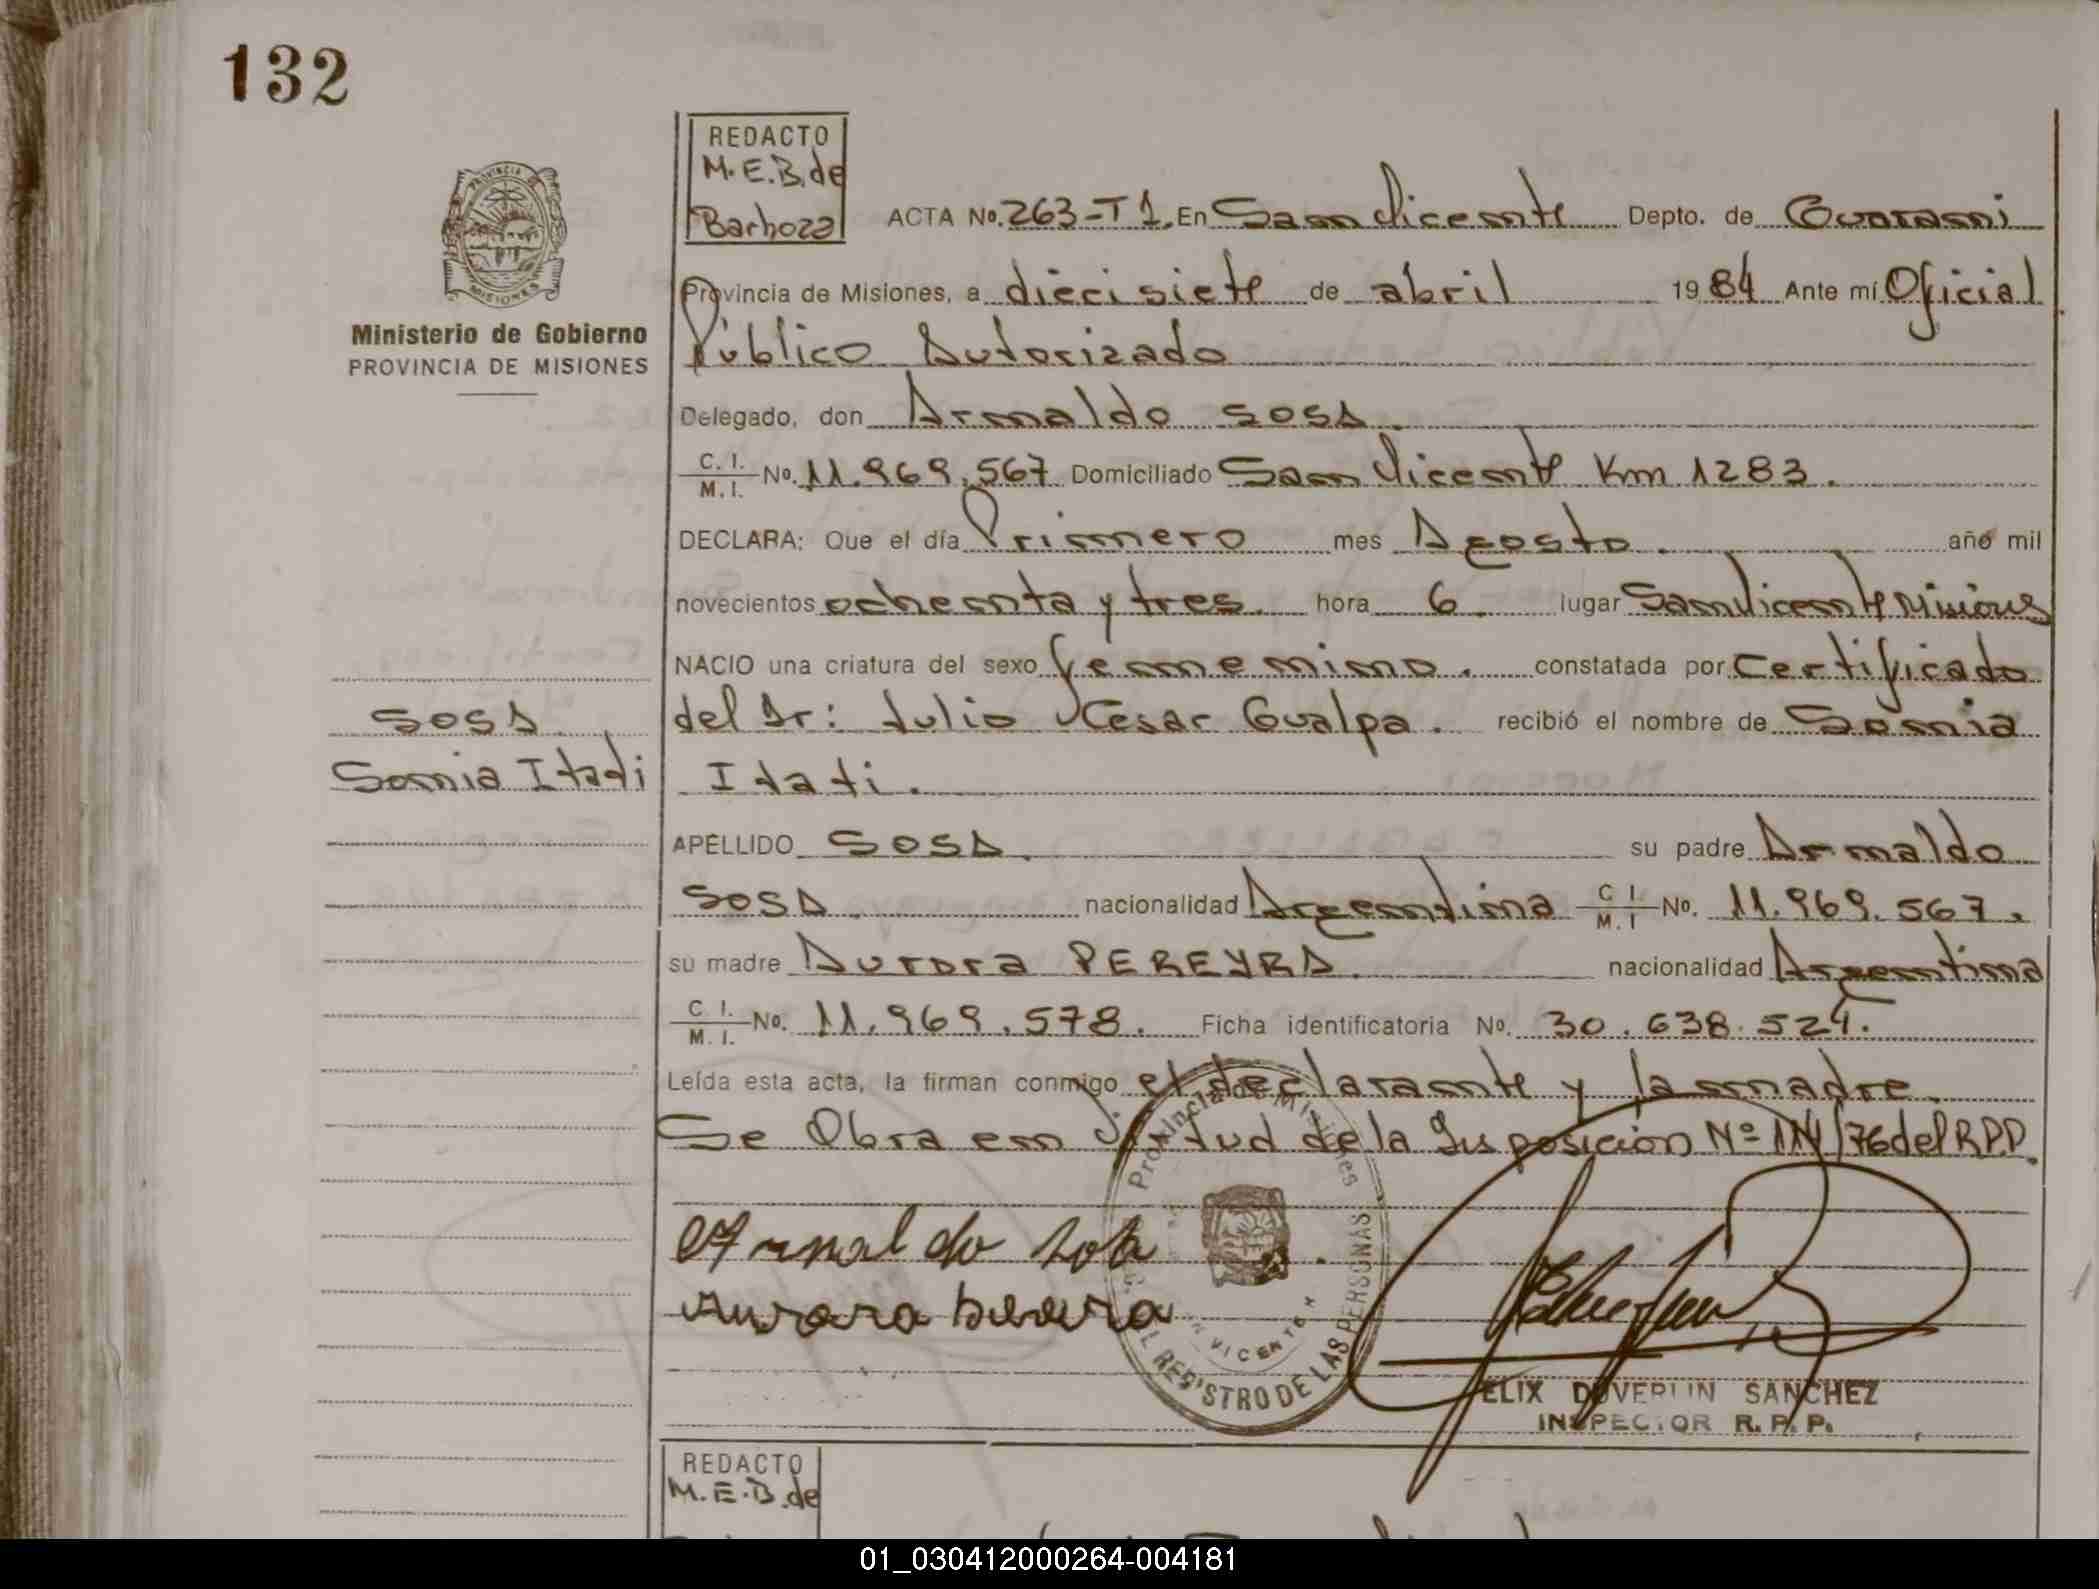 132
REDACTO
M.E.B. de
Barboza
ACTA No. 263-T1. En San Vicente Depto. de Guarani
Provincia de Misiones, a diecisiete de abril 1984 Ante mí Oficial
Público Autorizado
Delegado, don Arnaldo SOSA.
C. I. / M. I. No. 11.969.567 Domiciliado San Vicente Km 1283.
DECLARA: Que el día Primero mes Agosto. año mil
novecientos ochenta y tres. hora 6. lugar San Vicente Misiones
NACIO una criatura del sexo femenino. constatada por Certificado
del Dr: Julio Cesar Gualpa. recibió el nombre de Sonia
Itati.
APELLIDO SOSA. su padre Arnaldo
SOSA. nacionalidad Argentina C I. / M. I No. 11.969.567.
su madre Aurora PEREYRA. nacionalidad Argentina
C I. / M. I. No. 11.969.578. Ficha identificatoria No. 30.638.524.
Leída esta acta, la firman conmigo el declarante y la madre.
Se Obra en Virtud de la Disposición Nº /76 del R.P.P.
Ministerio de Gobierno
PROVINCIA DE MISIONES
SOSA
Sonia Itati
PROVINCIA DE
MISIONES
Arnaldo Sosa
Aurora
Provincia de Misiones
REGISTRO DE LAS PERSONAS
VICENTE
ELIX DUVERLIN SANCHEZ
INSPECTOR R. P. P.
REDACTO
M.E.B. de
01_030412000264-004181